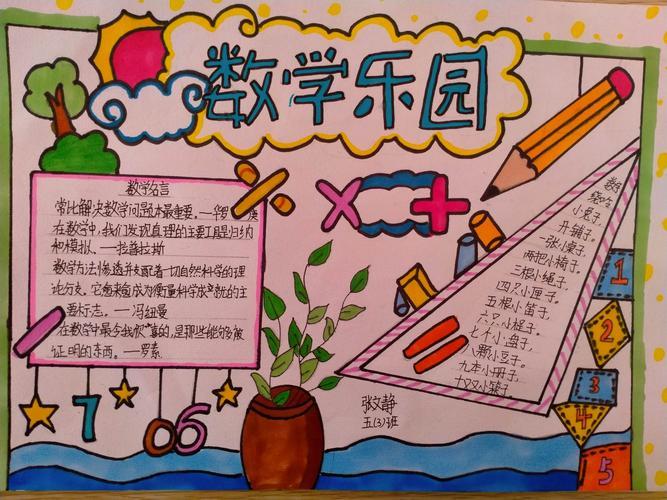 数学乐园
数学名言
常比解决数学问题本最重要。一华罗庚
在数学中,我们发现真理的主要工具是归纳
和模拟。一拉普拉斯
数学方法惨透并支配着一切自然科学的理
论分支。它愈来愈成为衡量科学成就的主
要标志。一冯纽曼
在数学中最令我欣喜的,是那些能够被
证明的东西。一罗素
数学
小兔子
开铺子。
一张小桌子,
两把小椅子,
三根小绳子,
四只小匣子,
五根小笛子,
六只小棍子,
七个小盘子,
八颗小豆子,
九本小册子,
十双小筷子。
1
2
3
4
5
7
0
6
张文静
五(3)班